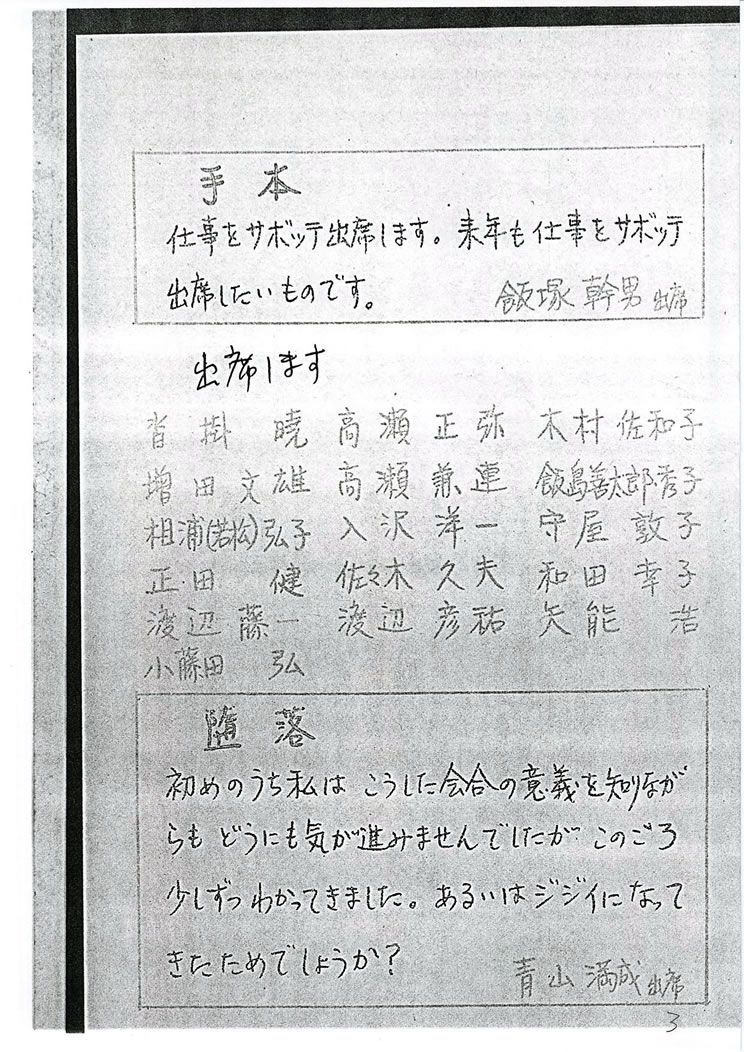 手本
仕事をサボッテ出席します。来年も仕事をサボッテ
出席したいものです。 飯塚幹男 出席
出席します
沓掛 暁 高瀬正弥 木村佐和子
増田文雄 高瀬兼連 飯島善太郎・秀子
相浦(若松)弘子 入沢洋一 守屋敦子
正田 健 佐々木久夫 和田幸子
渡辺藤一 渡辺彦祐 矢能 浩
小藤田 弘
堕落
初めのうち私は こうした会合の意義を知りなが
らも どうにも気が進みませんでしたが このごろ
少しずつわかってきました。あるいはジジイになって
きたためでしょうか?
青山満成 出席
3